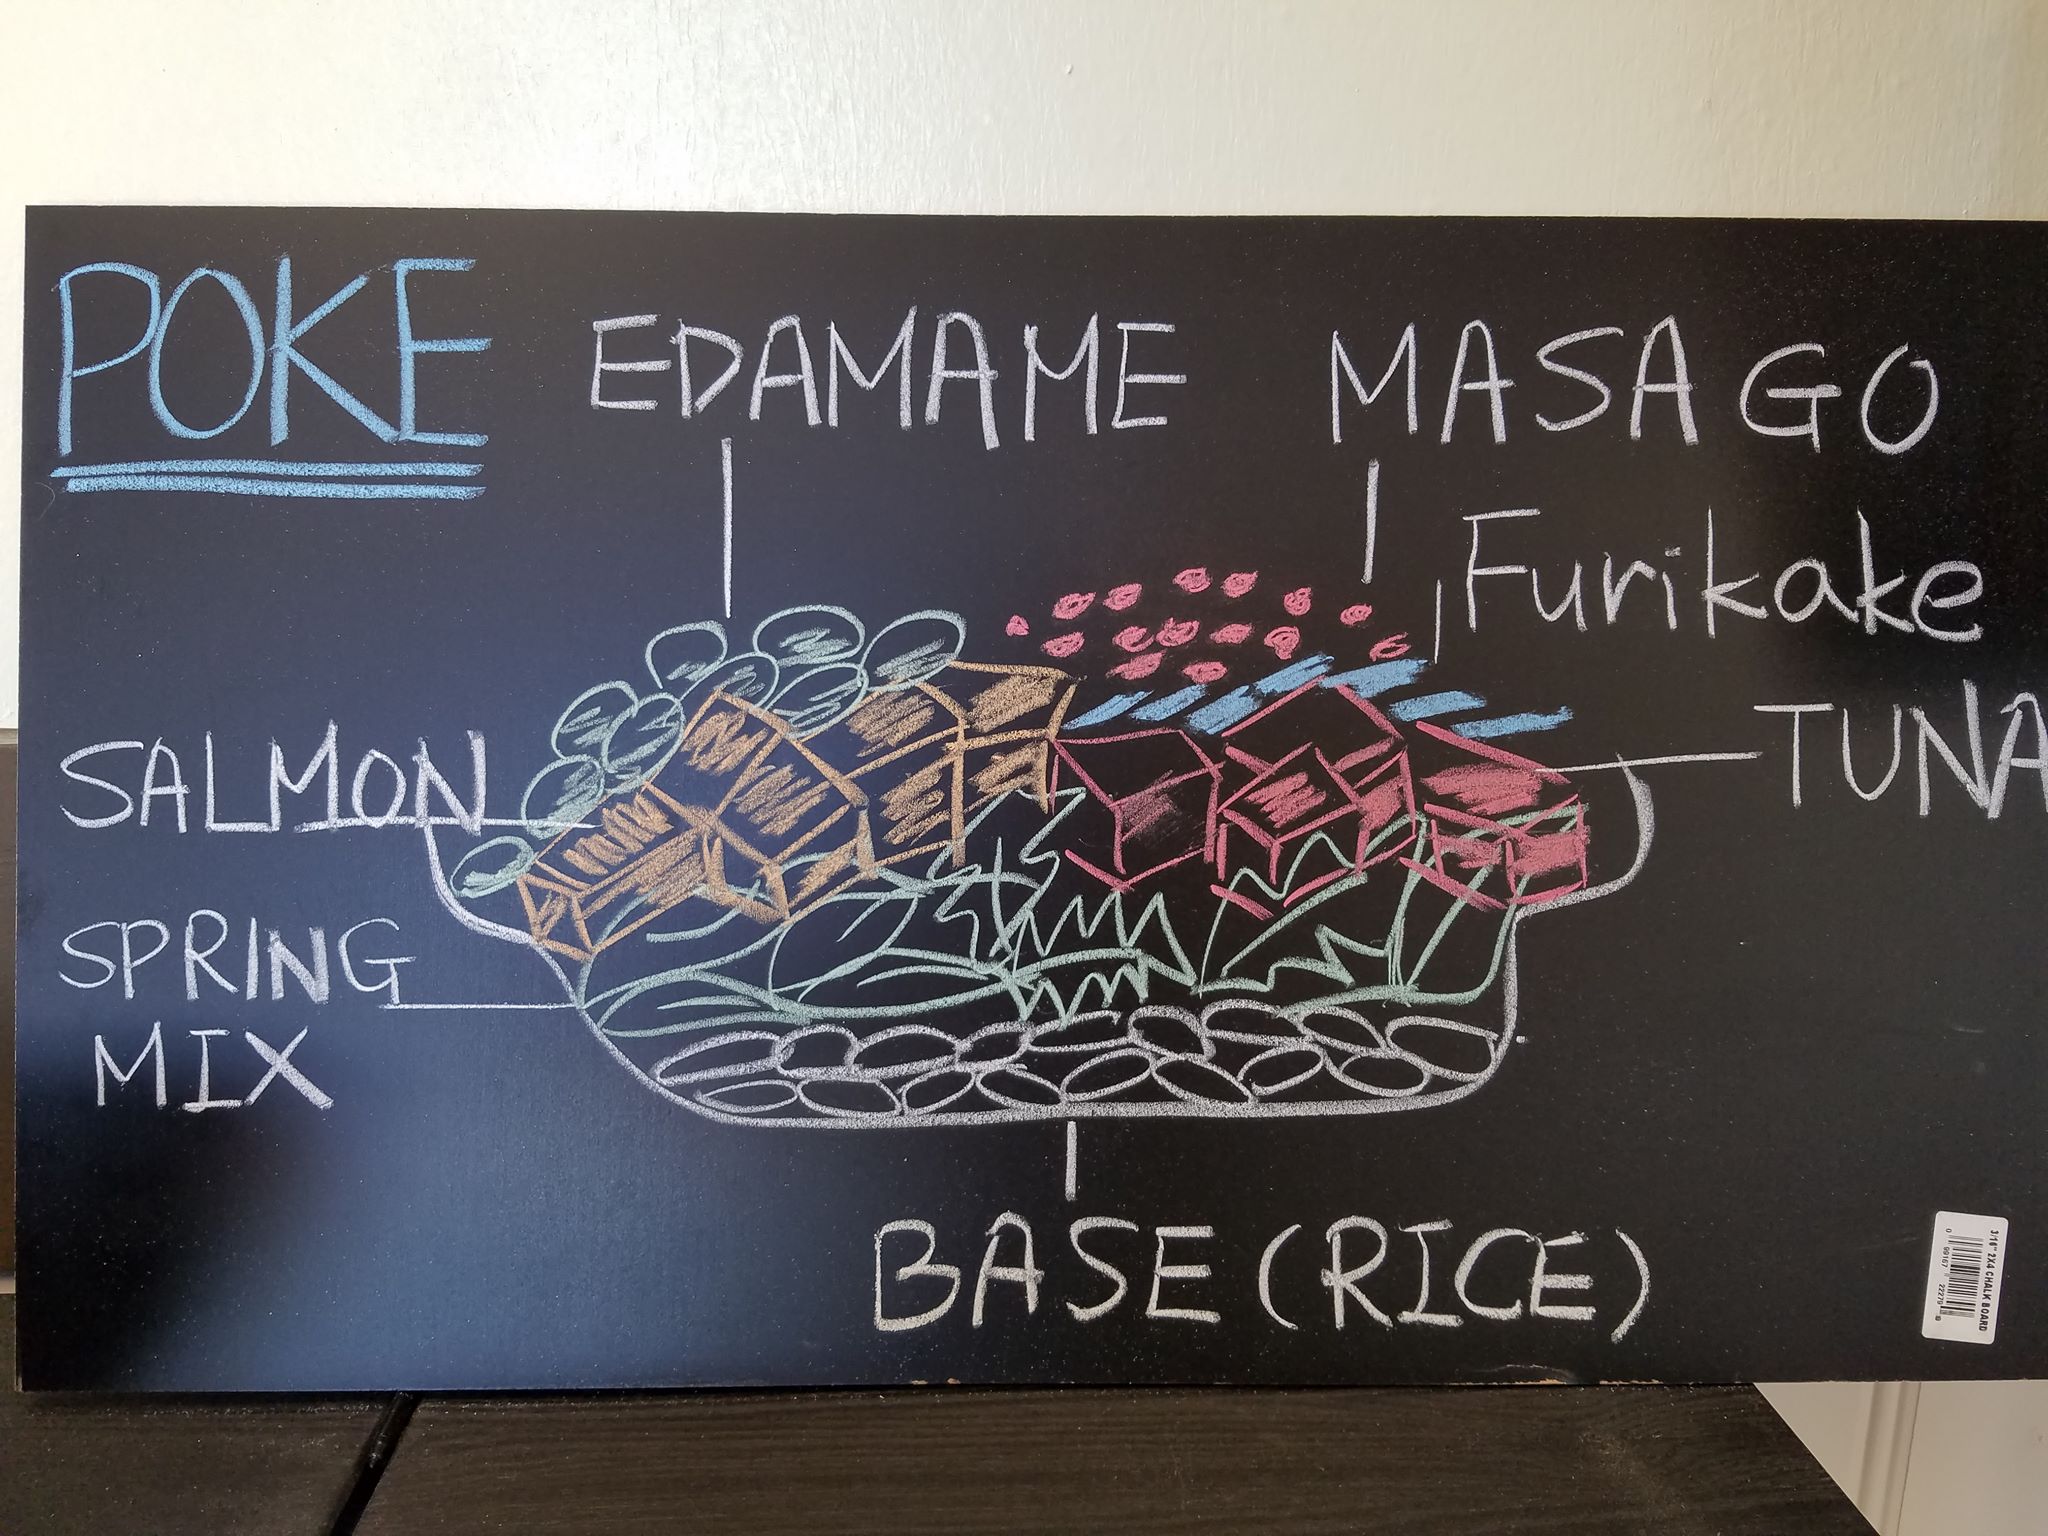 POKE
EDAMAME
MASAGO
Furikake
TUNA
SALMON
SPRING
MIX
BASE (RICE)
3/16" 2X4 CHALK BOARD
0 99167 22279